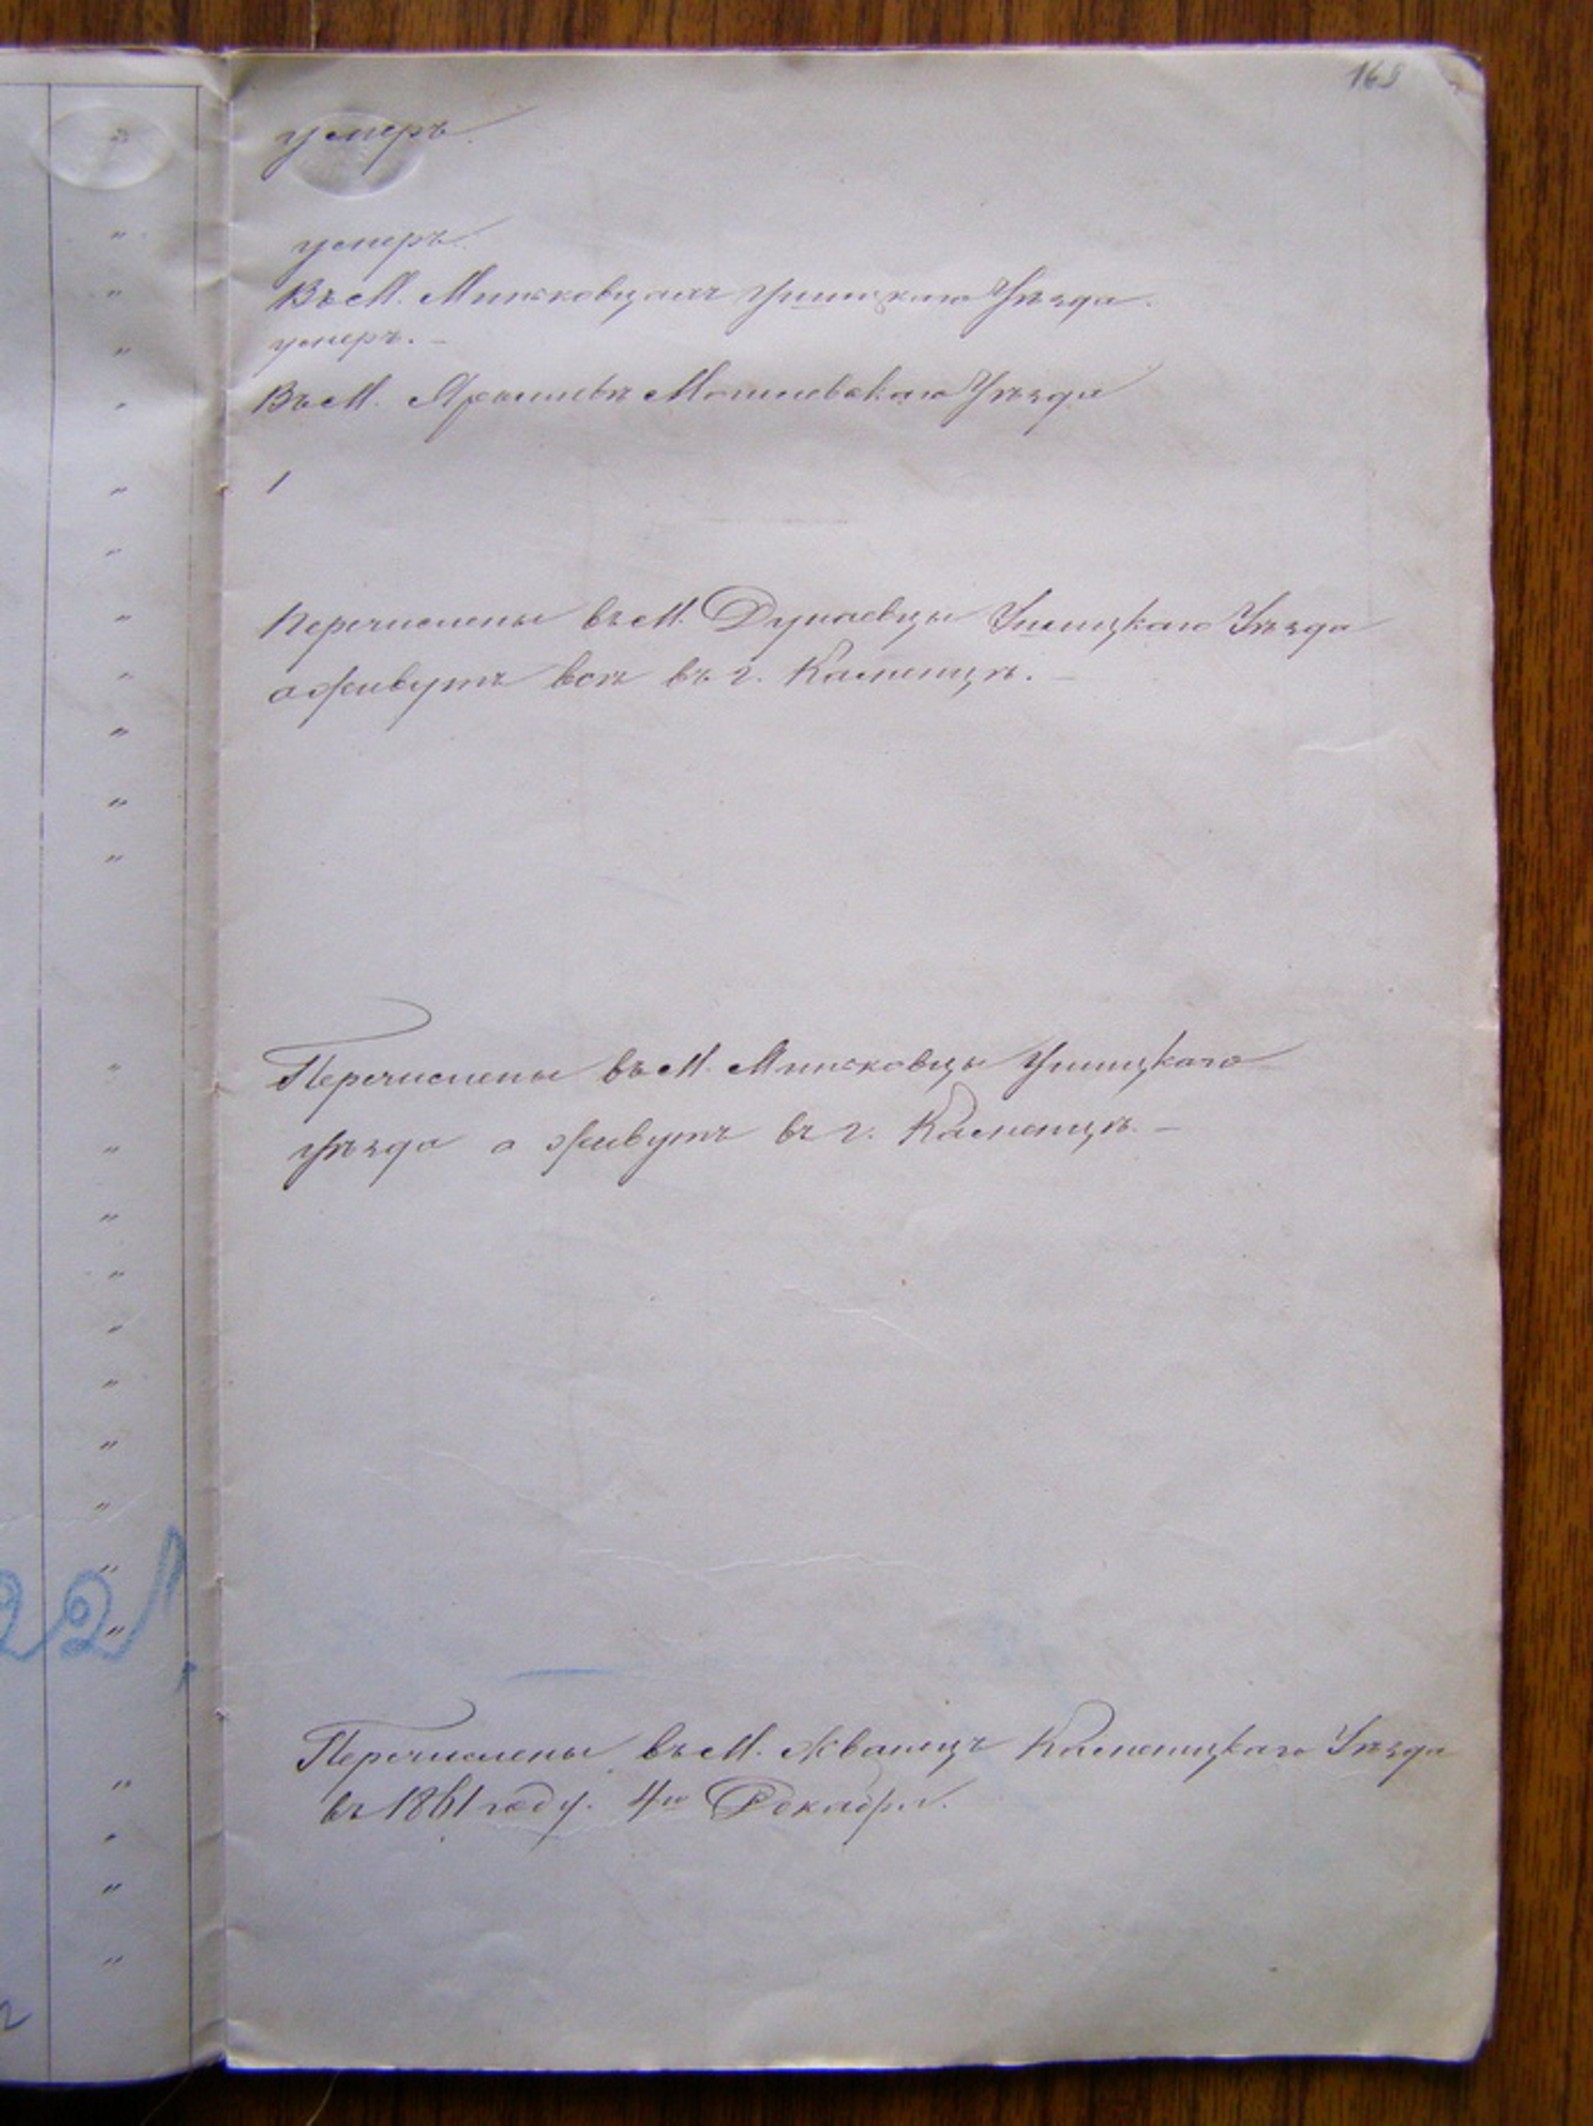 168
умеръ
умеръ.
Въ М. Миньковцахъ Ушицкаго Уѣзда.
умеръ. –
Въ М. Ярышевѣ Могилевскаго Уѣзда
Перечислены въ М. Дунаевцы Ушицкаго Уѣзда
а живутъ всѣ въ г. Каменцѣ. –
Перечислены въ М. Миньковцы Ушицкаго
уѣзда а живутъ въ г. Каменцѣ. –
22
Перечислены въ М. Жванецъ Каменецкаго Уѣзда
въ 1861 году. 4го Декабря.